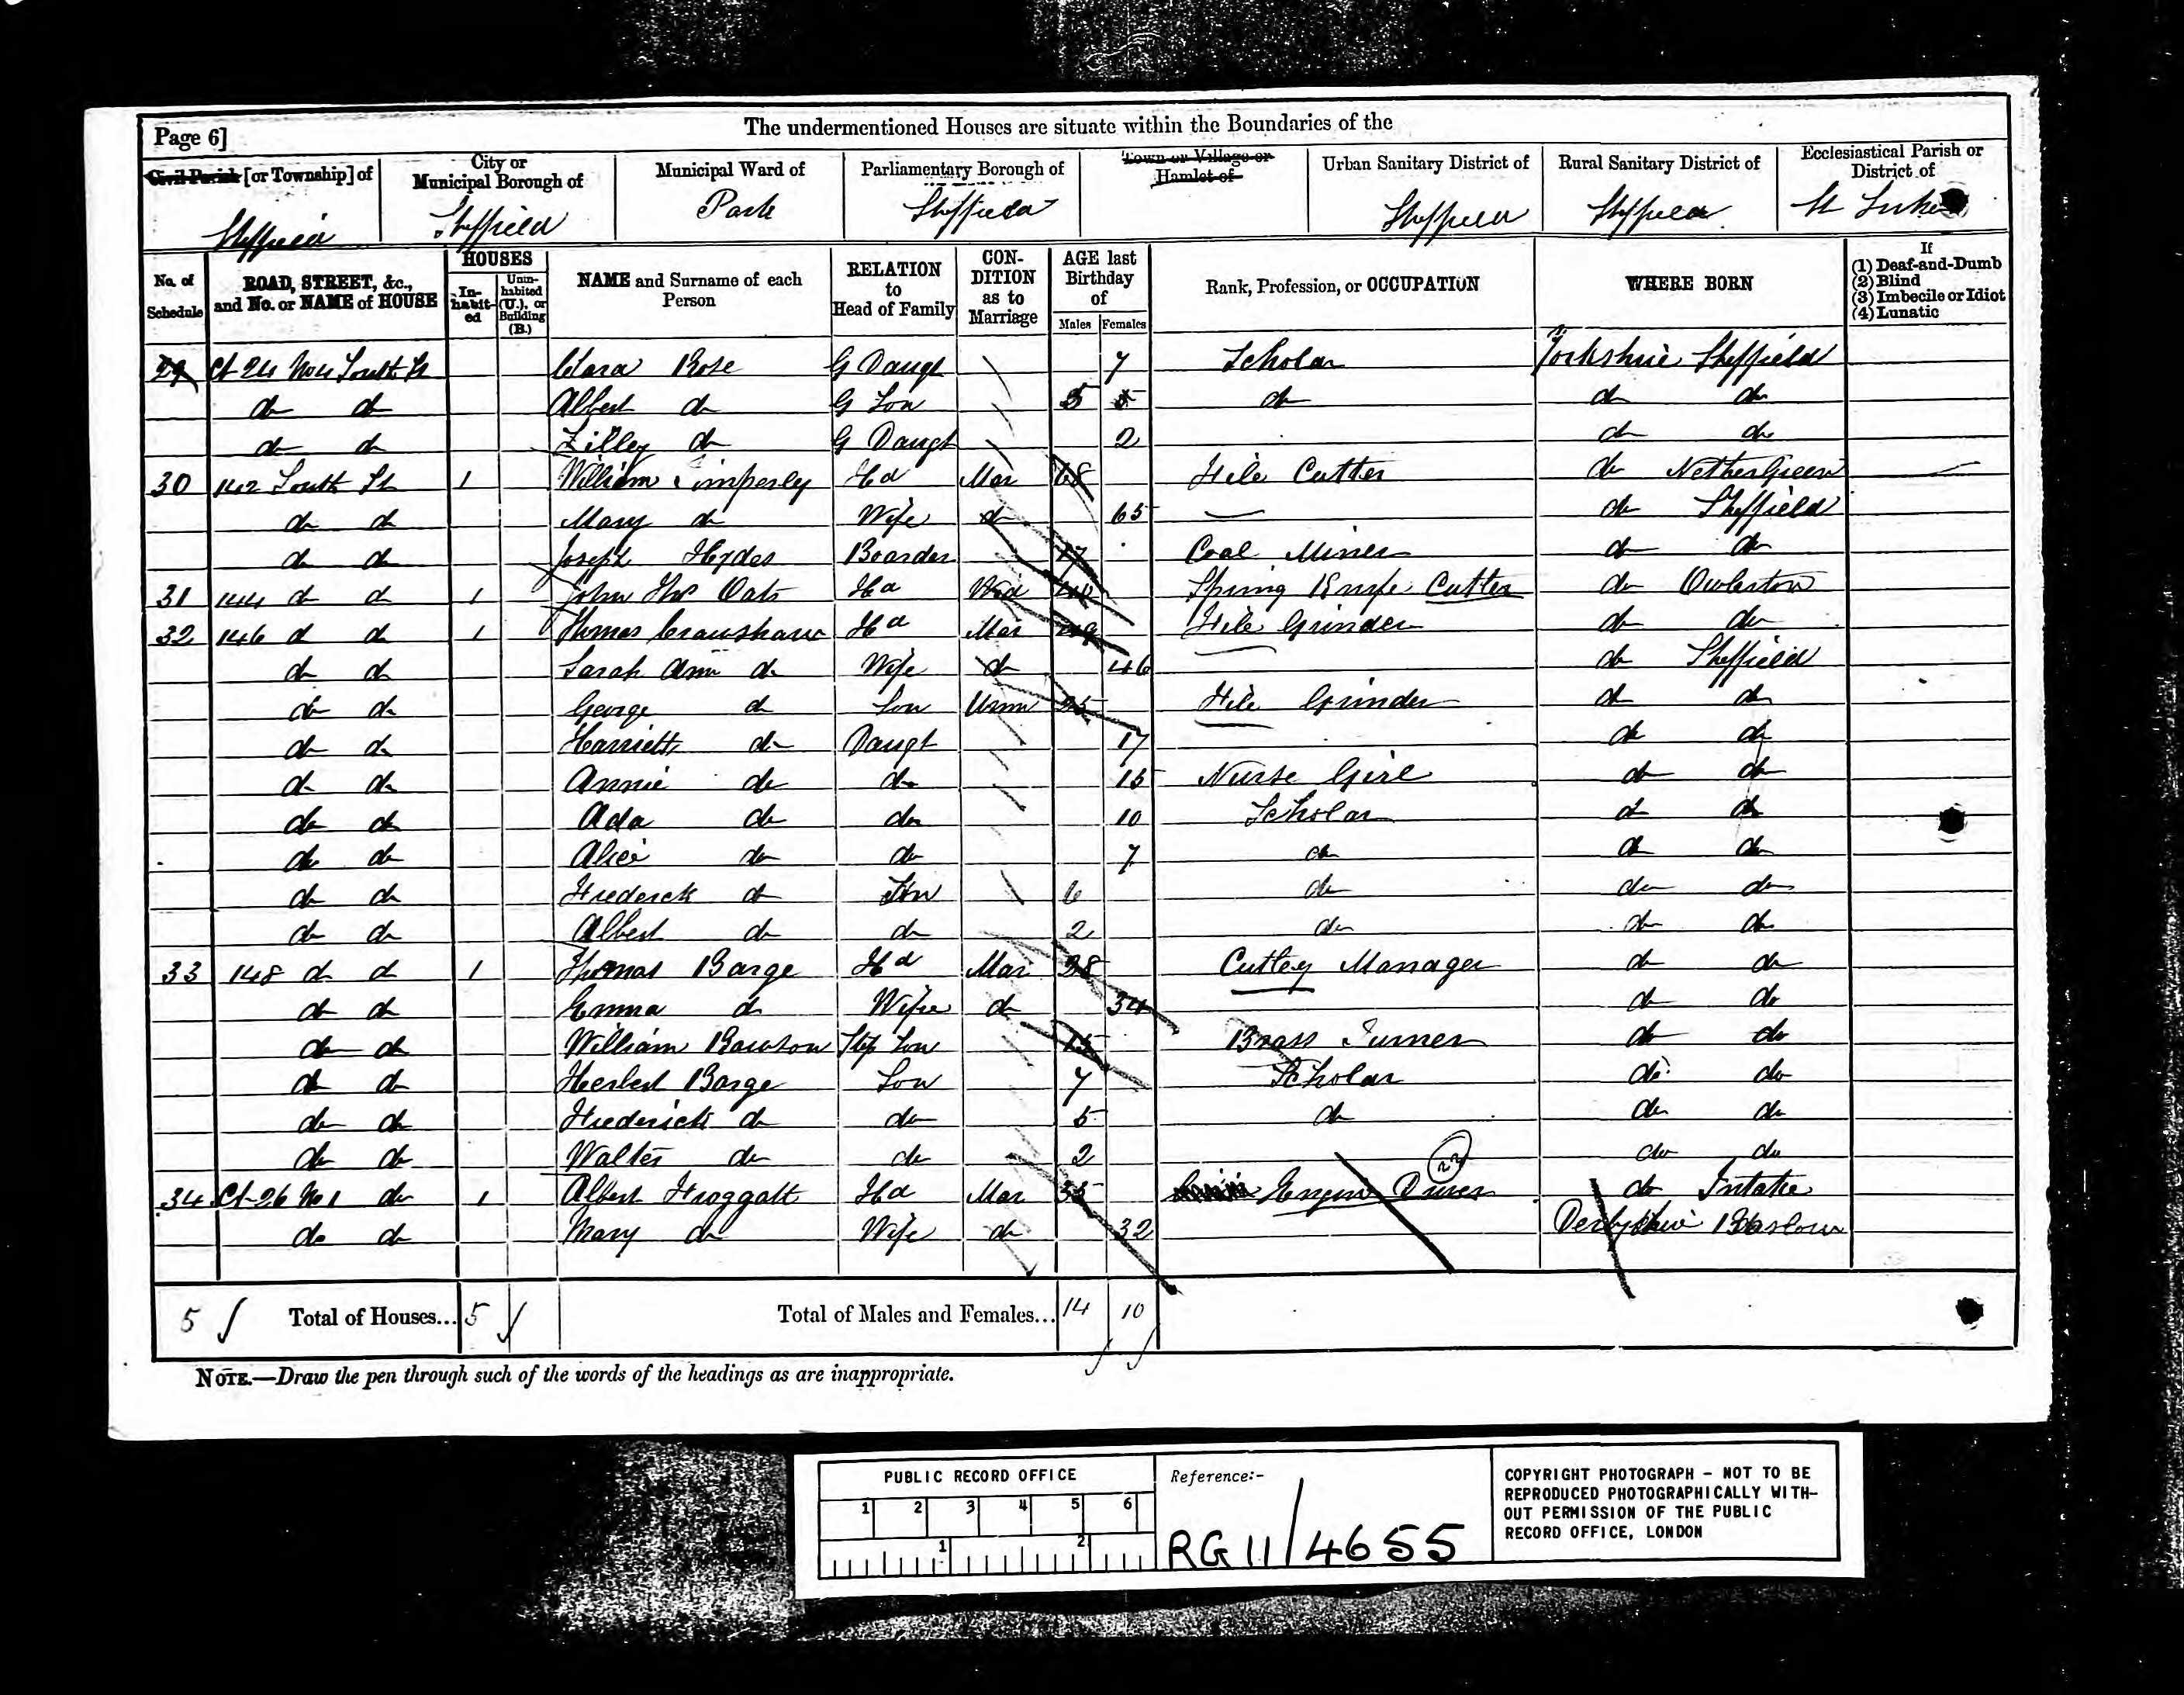 Page 6]
The undermentioned Houses are situate within the Boundaries of the
Civil Parish [or Township] of
City or Municipal Borough of
Municipal Ward of
Parliamentary Borough of
Town or Village or Hamlet of
Urban Sanitary District of
Rural Sanitary District of
Ecclesiastical Parish or District of
Sheffield Sheffield Park Sheffield Sheffield Sheffield St Lukes
No. of Schedule
ROAD, STREET, &c., and No. or NAME of HOUSE
HOUSES
In-habit-ed
Unin-habited (U.), or Building (B.)
NAME and Surname of each Person
RELATION to Head of Family
CON-DITION as to Marriage
AGE last Birthday of
Males Females
Rank, Profession, or OCCUPATION
WHERE BORN
If
(1) Deaf-and-Dumb
(2) Blind
(3) Imbecile or Idiot
(4) Lunatic
29 Ct 24 No 4 South St Clara Rose G Daugt 7 Scholar Yorkshire Sheffield
do do Albert do G Son 5 5 do do do
do do Lilley do G Daugt 2 do do
30 142 South St 1 William Timperly Hd Mar 68 File Cutter do NetherGreen
do do Mary do Wife do 65 do Sheffield
do do Joseph Hydes Boarder 17 Coal Miner do do
31 144 do do 1 John Thos Oats Hd Wid Spring Knife Cutter do Owlerton
32 146 do do 1 Thomas Crawshaw Hd Mar 49 File Grinder do do
do do Sarah Ann do Wife do 46 do Sheffield
do do George do Son Unm 25 File Grinder do do
do do Harriett do Daugt 17 do do
do do Annie do do 15 Nurse Girl do do
do do Ada do do 10 Scholar do do
do do Alice do do 7 do do do
do do Frederick do Son 6 do do do
do do Albert do do 2 do do do
33 148 do do 1 Thomas Barge Hd Mar 38 Cutley Manager do do
do do Emma do Wife do 34 do do
do do William Rawson Step Son 15 Brass Turner do do
do do Herbert Barge Son 7 Scholar do do
do do Frederick do do 5 do do do
do do Walter do do 2 do do
34 Ct 26 No 1 do 1 Albert Froggatt Hd Mar 35 Engine Driver 22 do Intake
do do Mary do Wife do 32 Derbyshire Baslow
5 Total of Houses... 5 Total of Males and Females... 14 10
NOTE.—Draw the pen through such of the words of the headings as are inappropriate.
PUBLIC RECORD OFFICE
1 2 3 4 5 6
1 2
Reference:-
RG 11/4655
COPYRIGHT PHOTOGRAPH – NOT TO BE
REPRODUCED PHOTOGRAPHICALLY WITH-
OUT PERMISSION OF THE PUBLIC
RECORD OFFICE, LONDON